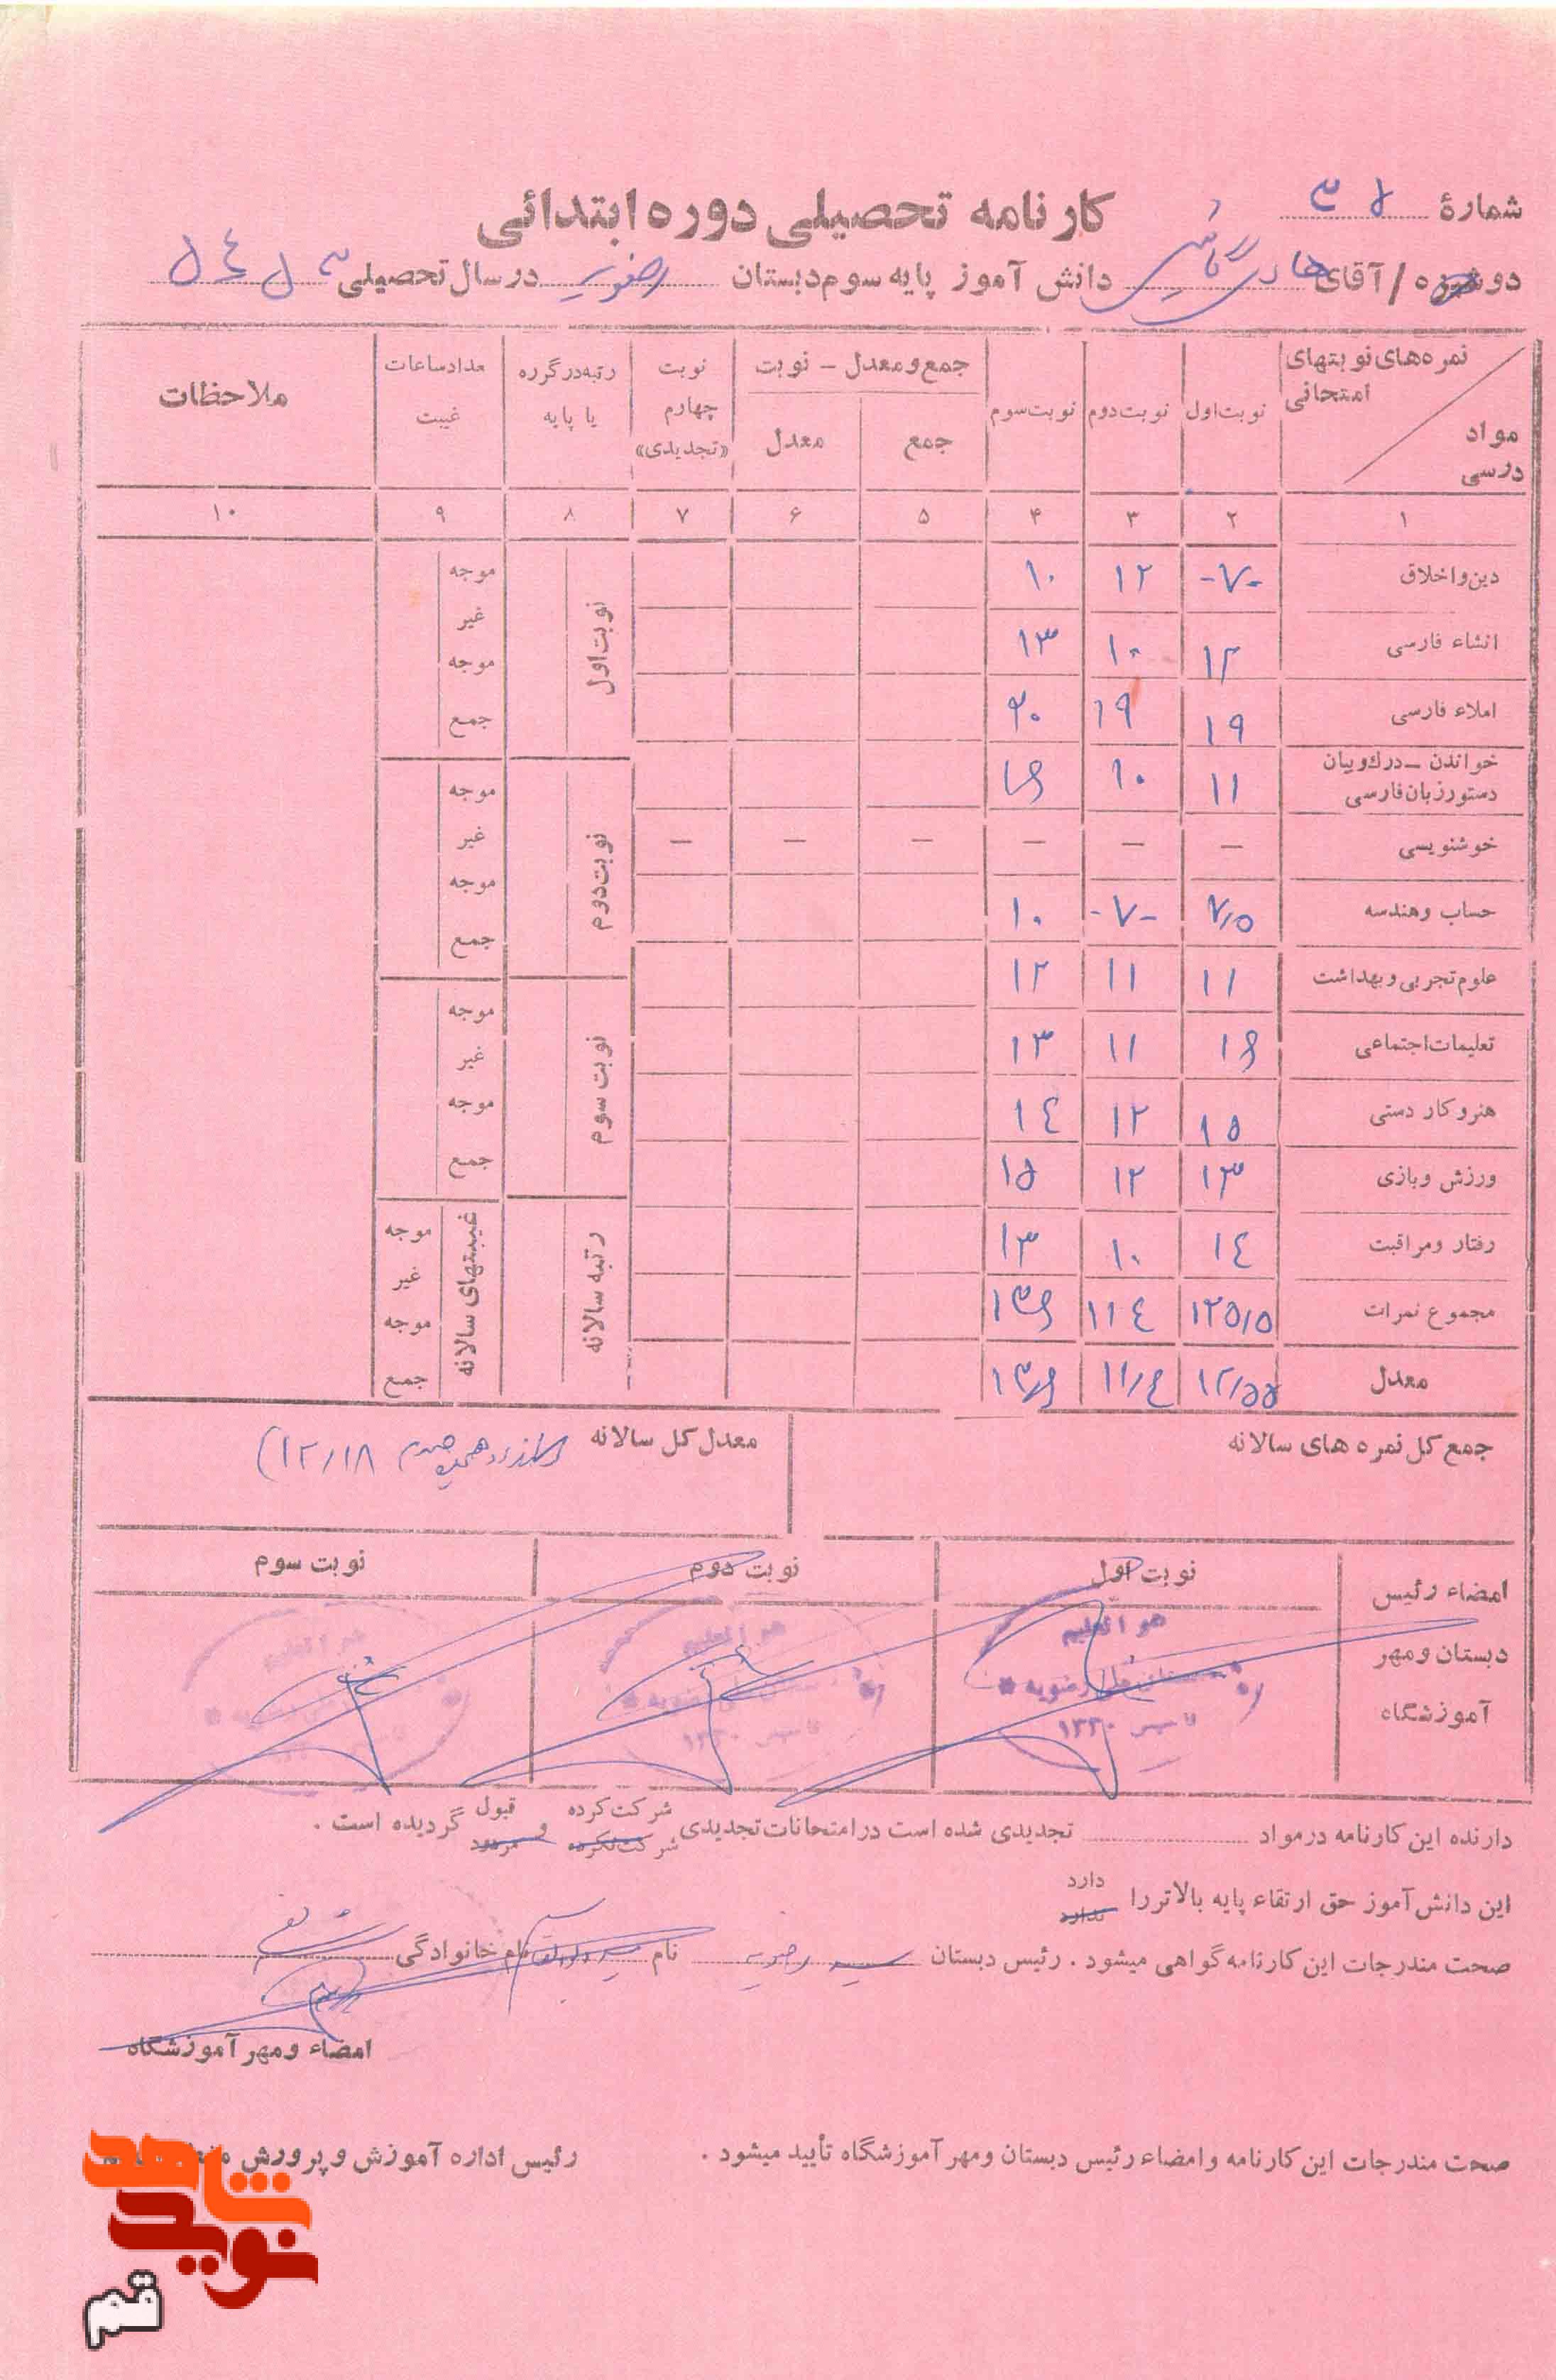 شمارهٔ ۳۵
کارنامه تحصیلی دوره ابتدائی
دوشیزه / آقای هادی دانش آموز پایه سوم دبستان رضویه در سال تحصیلی ۵۴ـ۵۳
نمره‌های نوبتهای امتحانی
مواد درسی
نوبت اول
نوبت دوم
نوبت سوم
جمع و معدل – نوبت
جمع
معدل
نوبت چهارم «تجدیدی»
رتبه در گروه یا پایه
تعداد ساعات غیبت
ملاحظات
۱ ۲ ۳ ۴ ۵ ۶ ۷ ۸ ۹ ۱۰
دین و اخلاق -۷- ۱۲ ۱۰
انشاء فارسی ۱۲ ۱۰ ۱۳
املاء فارسی ۱۹ ۱۹ ۲۰
خواندن – درك و بیان دستور زبان فارسی ۱۱ ۱۰ ۱۶
خوشنویسی – – – – – –
حساب و هندسه ۷/۵ -۷- ۱۰
علوم تجربی و بهداشت ۱۱ ۱۱ ۱۲
تعلیمات اجتماعی ۱۶ ۱۱ ۱۳
هنر و کار دستی ۱۵ ۱۲ ۱۴
ورزش و بازی ۱۳ ۱۲ ۱۵
رفتار و مراقبت ۱۴ ۱۰ ۱۳
مجموع نمرات ۱۲۵/۵ ۱۱۴ ۱۳۶
معدل ۱۲/۵۵ ۱۱/۴ ۱۳/۶
نوبت اول
موجه
غیر موجه
جمع
نوبت دوم
موجه
غیر موجه
جمع
نوبت سوم
موجه
غیر موجه
جمع
رتبه سالانه
غیبتهای سالانه
موجه
غیر موجه
جمع
جمع کل نمره های سالانه
معدل کل سالانه (۱۲/۱۸)
امضاء رئیس دبستان و مهر آموزشگاه
نوبت اول
نوبت دوم
نوبت سوم
هو العلیم
دبستان ملی رضویه
۱۳۳۰
دارنده این کارنامه در مواد تجدیدی شده است در امتحانات تجدیدی شرکت کرده شرکت نکرده و قبول مردود گردیده است .
این دانش آموز حق ارتقاء پایه بالاتر را دارد ندارد
صحت مندرجات این کارنامه گواهی میشود . رئیس دبستان رضویه نام نام خانوادگی
امضاء و مهر آموزشگاه
صحت مندرجات این کارنامه و امضاء رئیس دبستان و مهر آموزشگاه تأیید میشود .
رئیس اداره آموزش و پرورش
نوید شاهد
قم